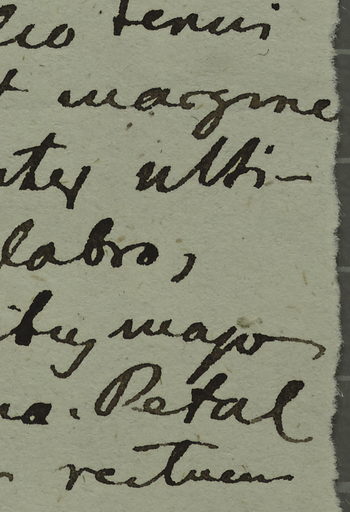 lio tenui
t margine
nter ulti-
labro,
ibus major
na. Petal
rectum